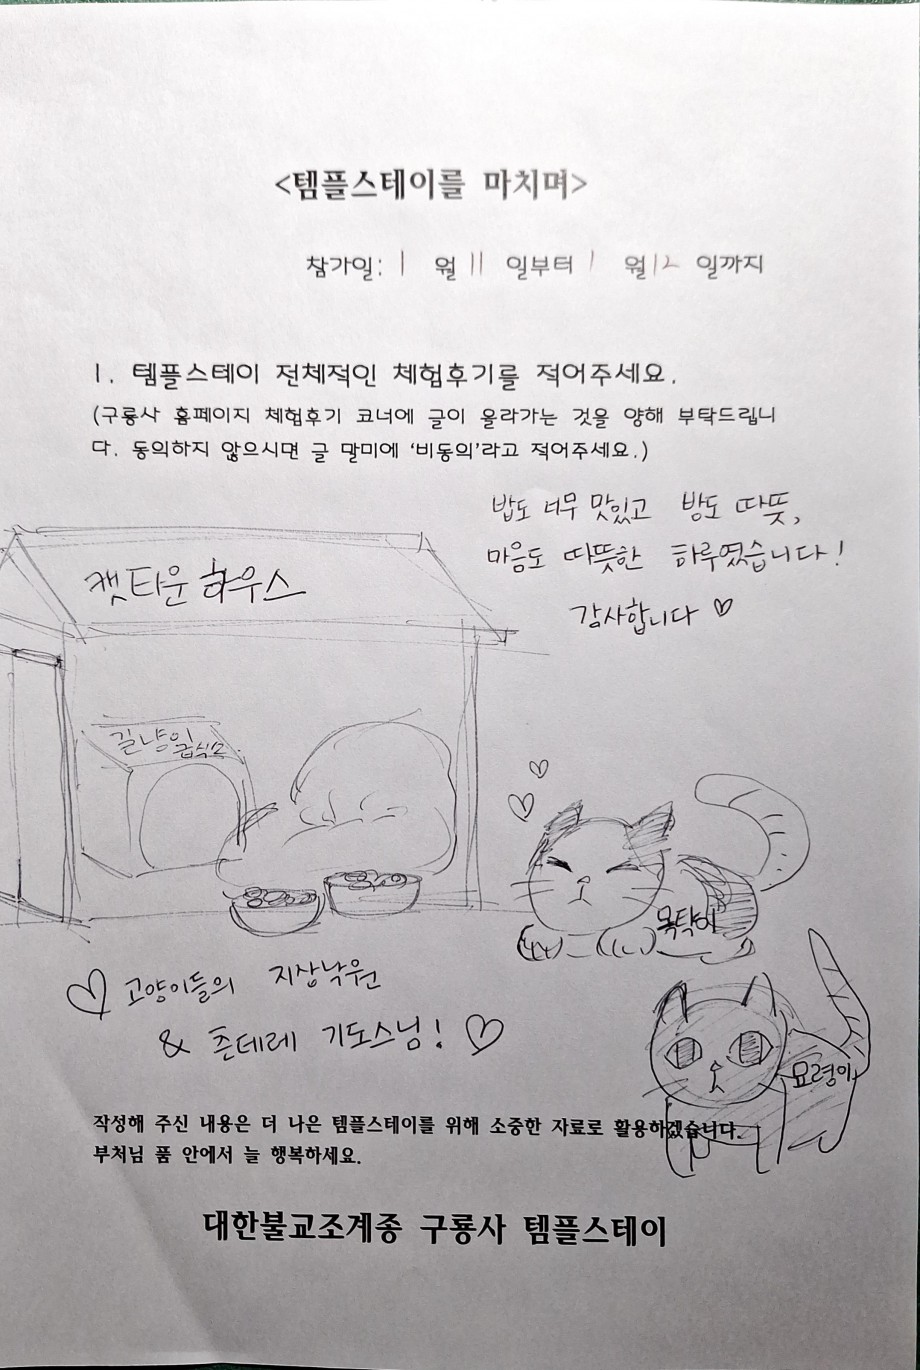 <템플스테이를 마치며>
참가일: 1 월 11 일부터 1 월 12 일까지
1. 템플스테이 전체적인 체험후기를 적어주세요.
(구룡사 홈페이지 체험후기 코너에 글이 올라가는 것을 양해 부탁드립니
다. 동의하지 않으시면 글 말미에 '비동의'라고 적어주세요.)
밥도 너무 맛있고 방도 따뜻,
마음도 따뜻한 하루였습니다!
감사합니다 ♡
캣타운 하우스
길냥이 급식소
목탁이
♡ 고양이들의 지상낙원
& 츤데레 기도스님! ♡
묘령이
작성해 주신 내용은 더 나은 템플스테이를 위해 소중한 자료로 활용하겠습니다.
부처님 품 안에서 늘 행복하세요.
대한불교조계종 구룡사 템플스테이